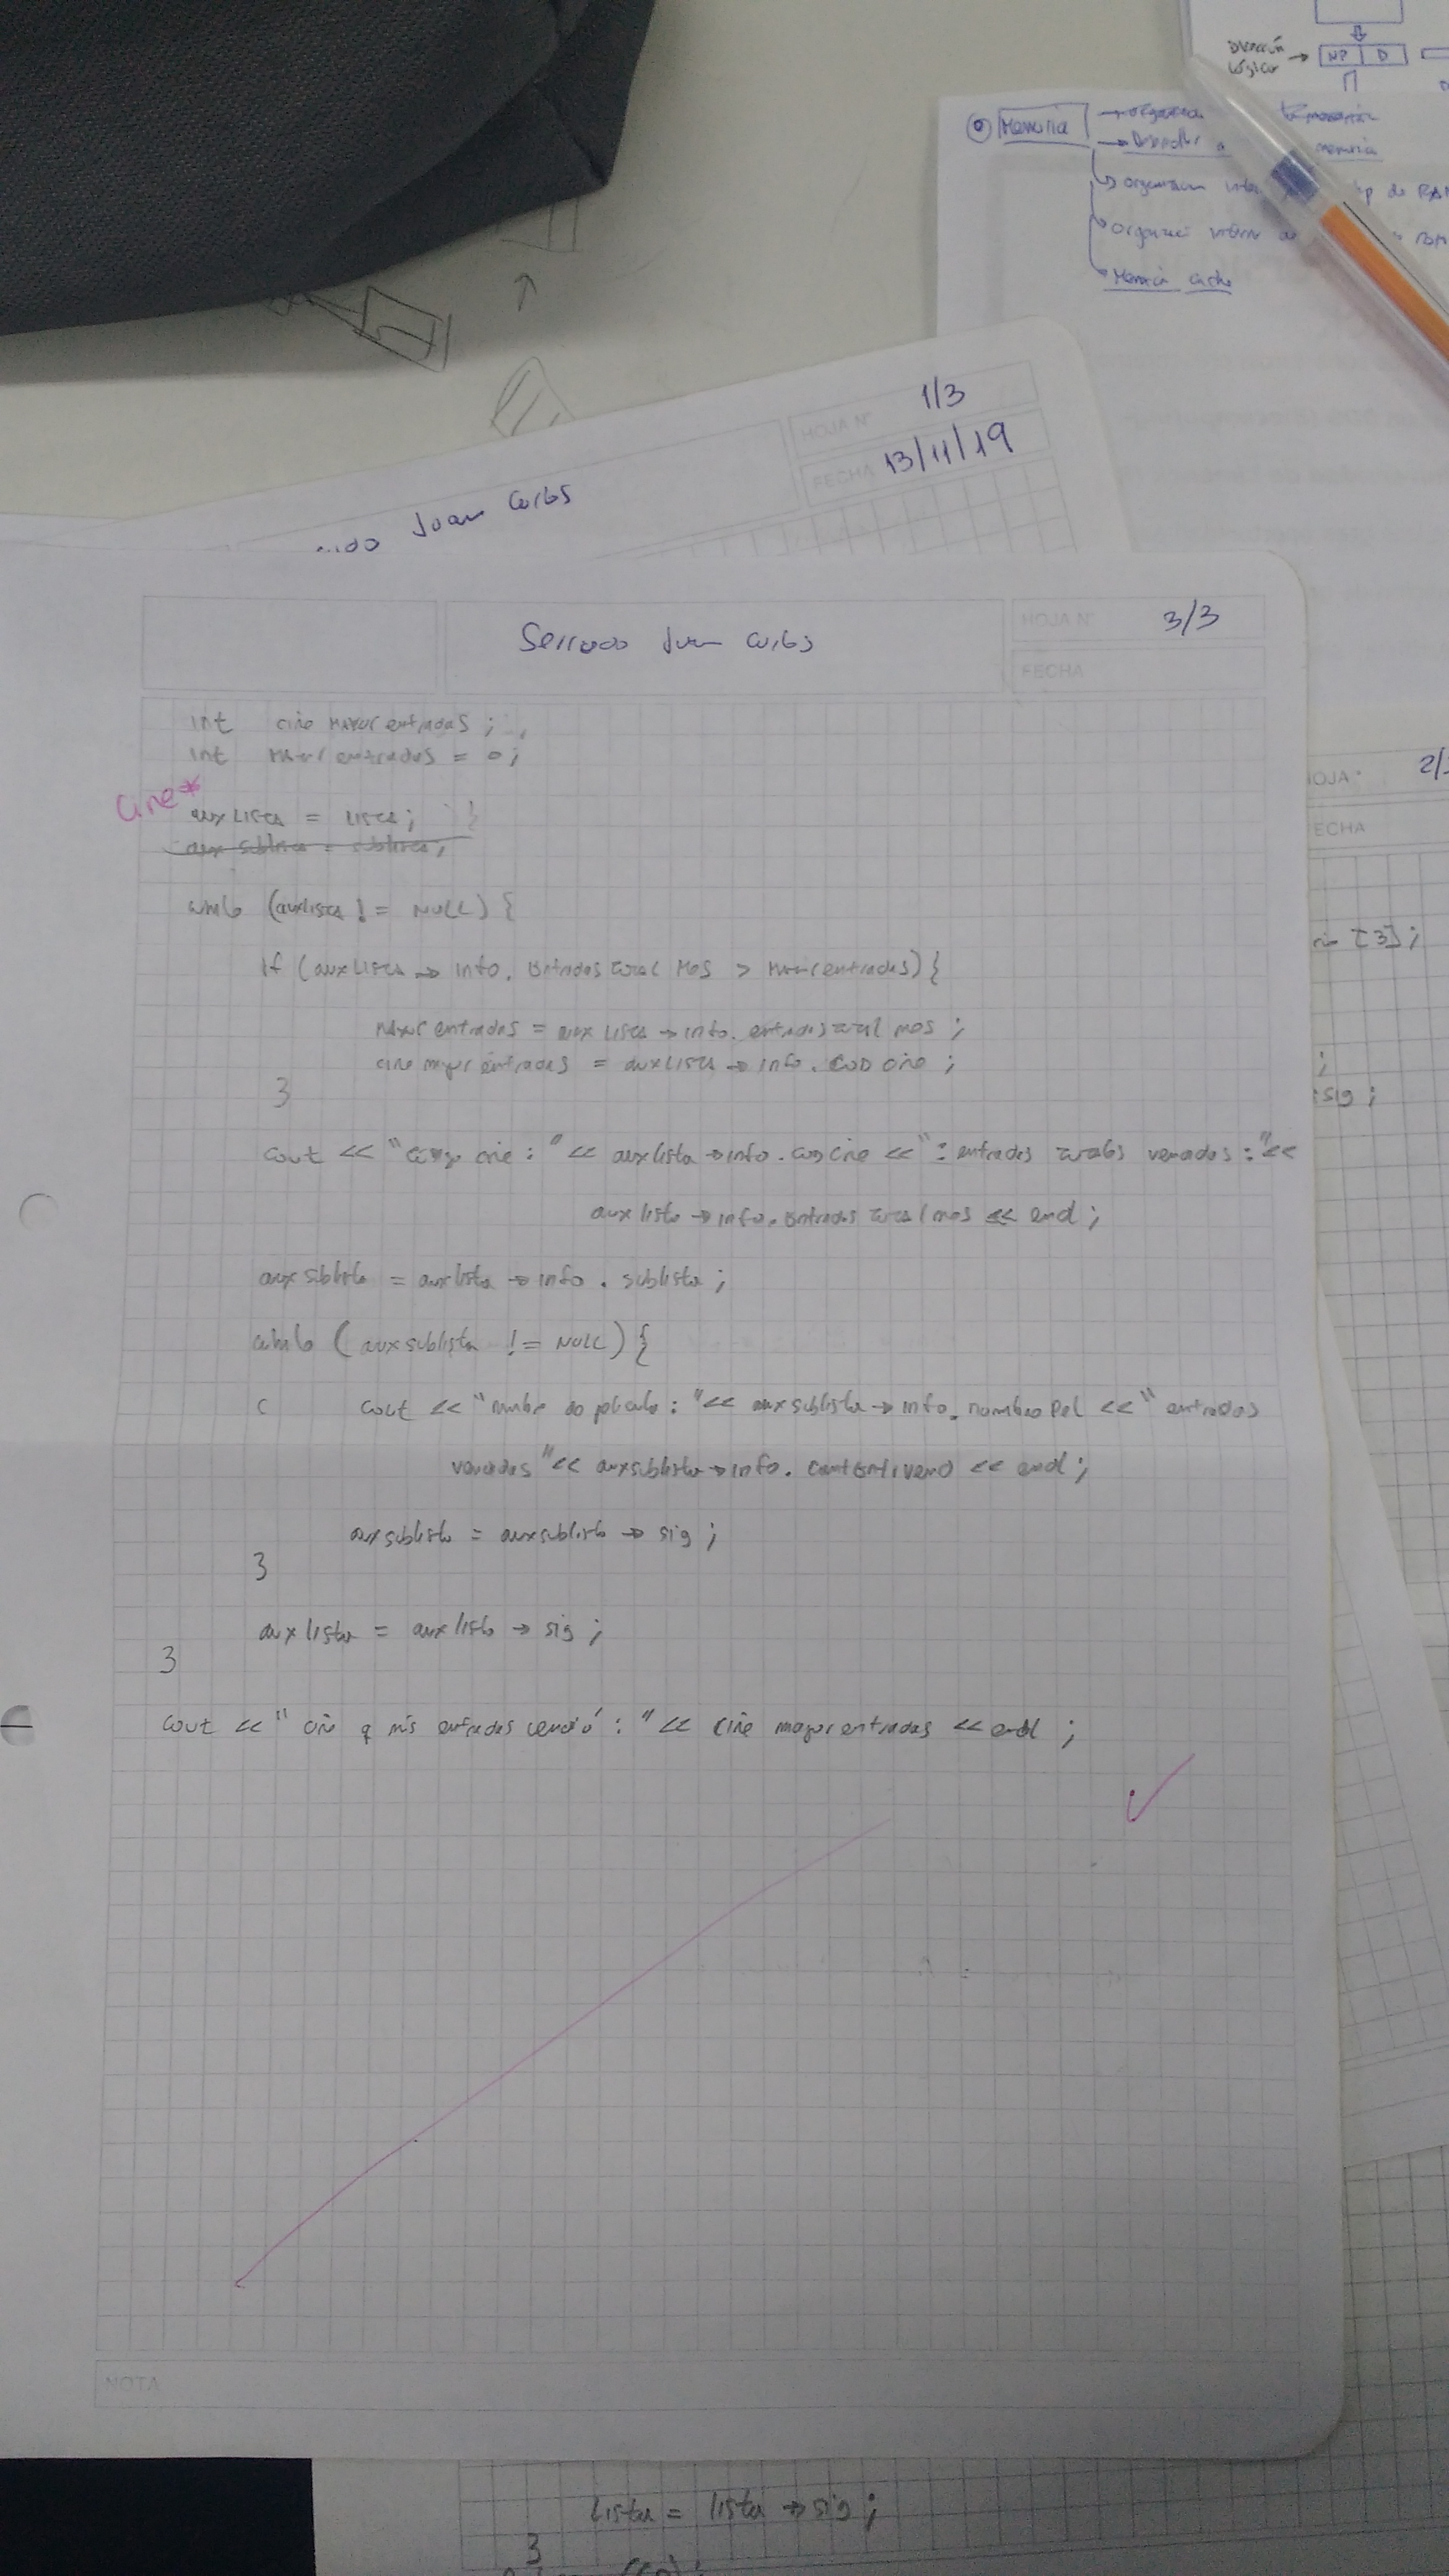 Dirección
lógica → NP D
Memoria → organiza
→
organizacion interna
organizaci interna de
Memoria cache
memoria
de RAM
HOJA N° 1/3
FECHA 13/11/19
Juan Carlos
Serrado Juan Carlos
HOJA N° 3/3
FECHA
int cine mayor entradas ;
int Mayor entradas = 0;
Cine*
aux Lista = Lista;
aux sublista = sublista;
while (auxlista != NULL) {
if (aux Lista → info. Entradas total Mes > Mayor entradas) {
Mayor entradas = aux Lista → info. entradas total mes ;
cine mayor entradas = aux Lista → info. COD cine ;
}
cout << "codigo cine : " << aux lista → info. cod cine << " : entradas totales vendidas : " <<
aux lista → info. Entradas total mes << endl ;
aux sublista = aux lista → info . sublista ;
while ( aux sublista != NULL) {
c cout << "nombre de pelicula : " << aux sublista → info. nombre Pel << " entradas
vendidas " << aux sublista → info. cantEntrVend << endl ;
aux sublista = aux sublista → sig ;
}
aux lista = aux lista → sig ;
}
cout << " cine q más entradas vendió : " << cine mayor entradas << endl ;
NOTA
HOJA °
FECHA
[3] ;
;
sig ;
lista = lista → sig ;
}